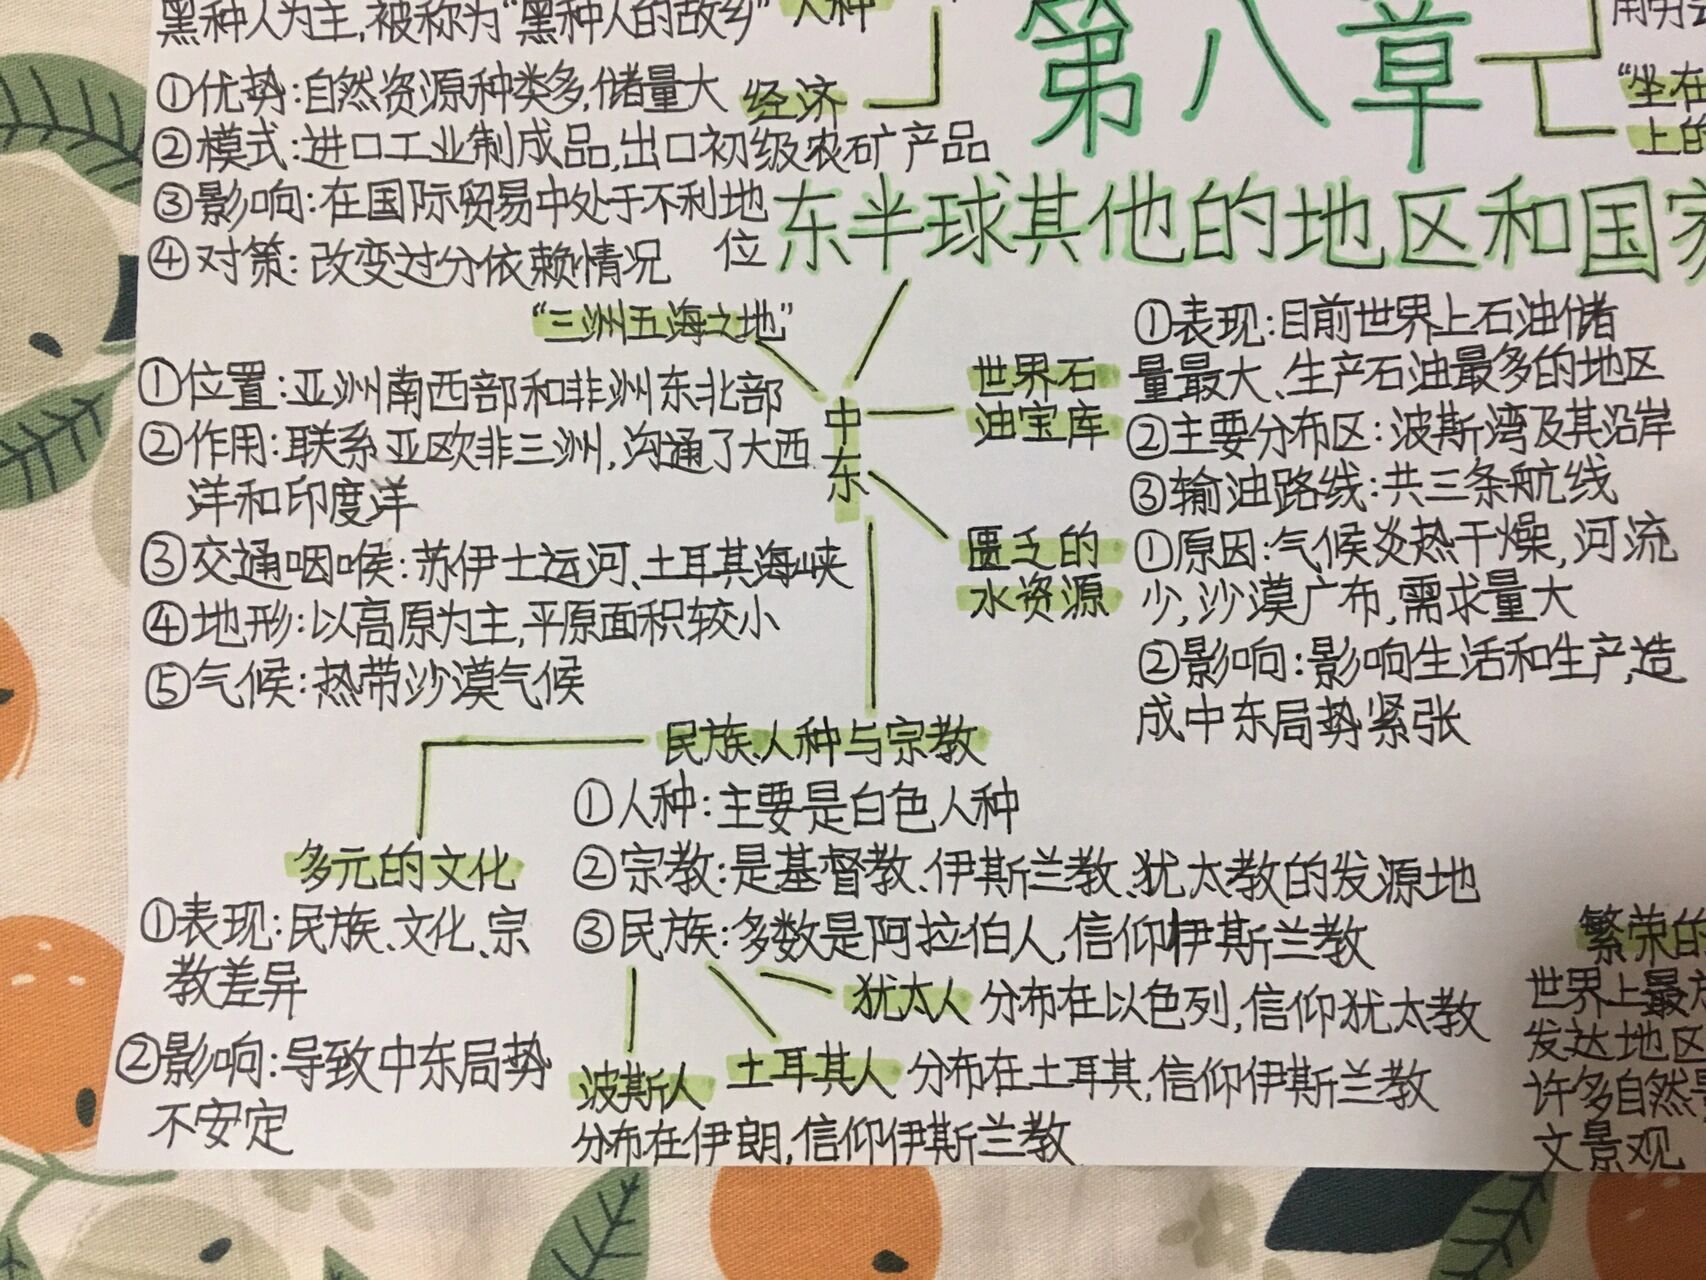 黑种人为主,被称为“黑种人的故乡” 人种
①优势:自然资源种类多,储量大 经济
②模式:进口工业制成品,出口初级农矿产品
③影响:在国际贸易中处于不利地
位
④对策:改变过分依赖情况
第八章
东半球其他的地区和国家
“坐在
上的
“三洲五海之地”
①位置:亚洲南西部和非洲东北部
②作用:联系亚欧非三洲,沟通了大西
洋和印度洋
③交通咽喉:苏伊士运河、土耳其海峡
④地形:以高原为主,平原面积较小
⑤气候:热带沙漠气候
中
东
世界石
油宝库
①表现:目前世界上石油储
量最大、生产石油最多的地区
②主要分布区:波斯湾及其沿岸
③输油路线:共三条航线
匮乏的
水资源
①原因:气候炎热干燥,河流
少,沙漠广布,需求量大
②影响:影响生活和生产,造
成中东局势紧张
民族、人种与宗教
①人种:主要是白色人种
②宗教:是基督教、伊斯兰教、犹太教的发源地
③民族:多数是阿拉伯人,信仰伊斯兰教
犹太人 分布在以色列,信仰犹太教
土耳其人 分布在土耳其,信仰伊斯兰教
波斯人
分布在伊朗,信仰伊斯兰教
多元的文化
①表现:民族、文化、宗
教差异
②影响:导致中东局势
不安定
繁荣的
世界上最
发达地区
许多自然
文景观